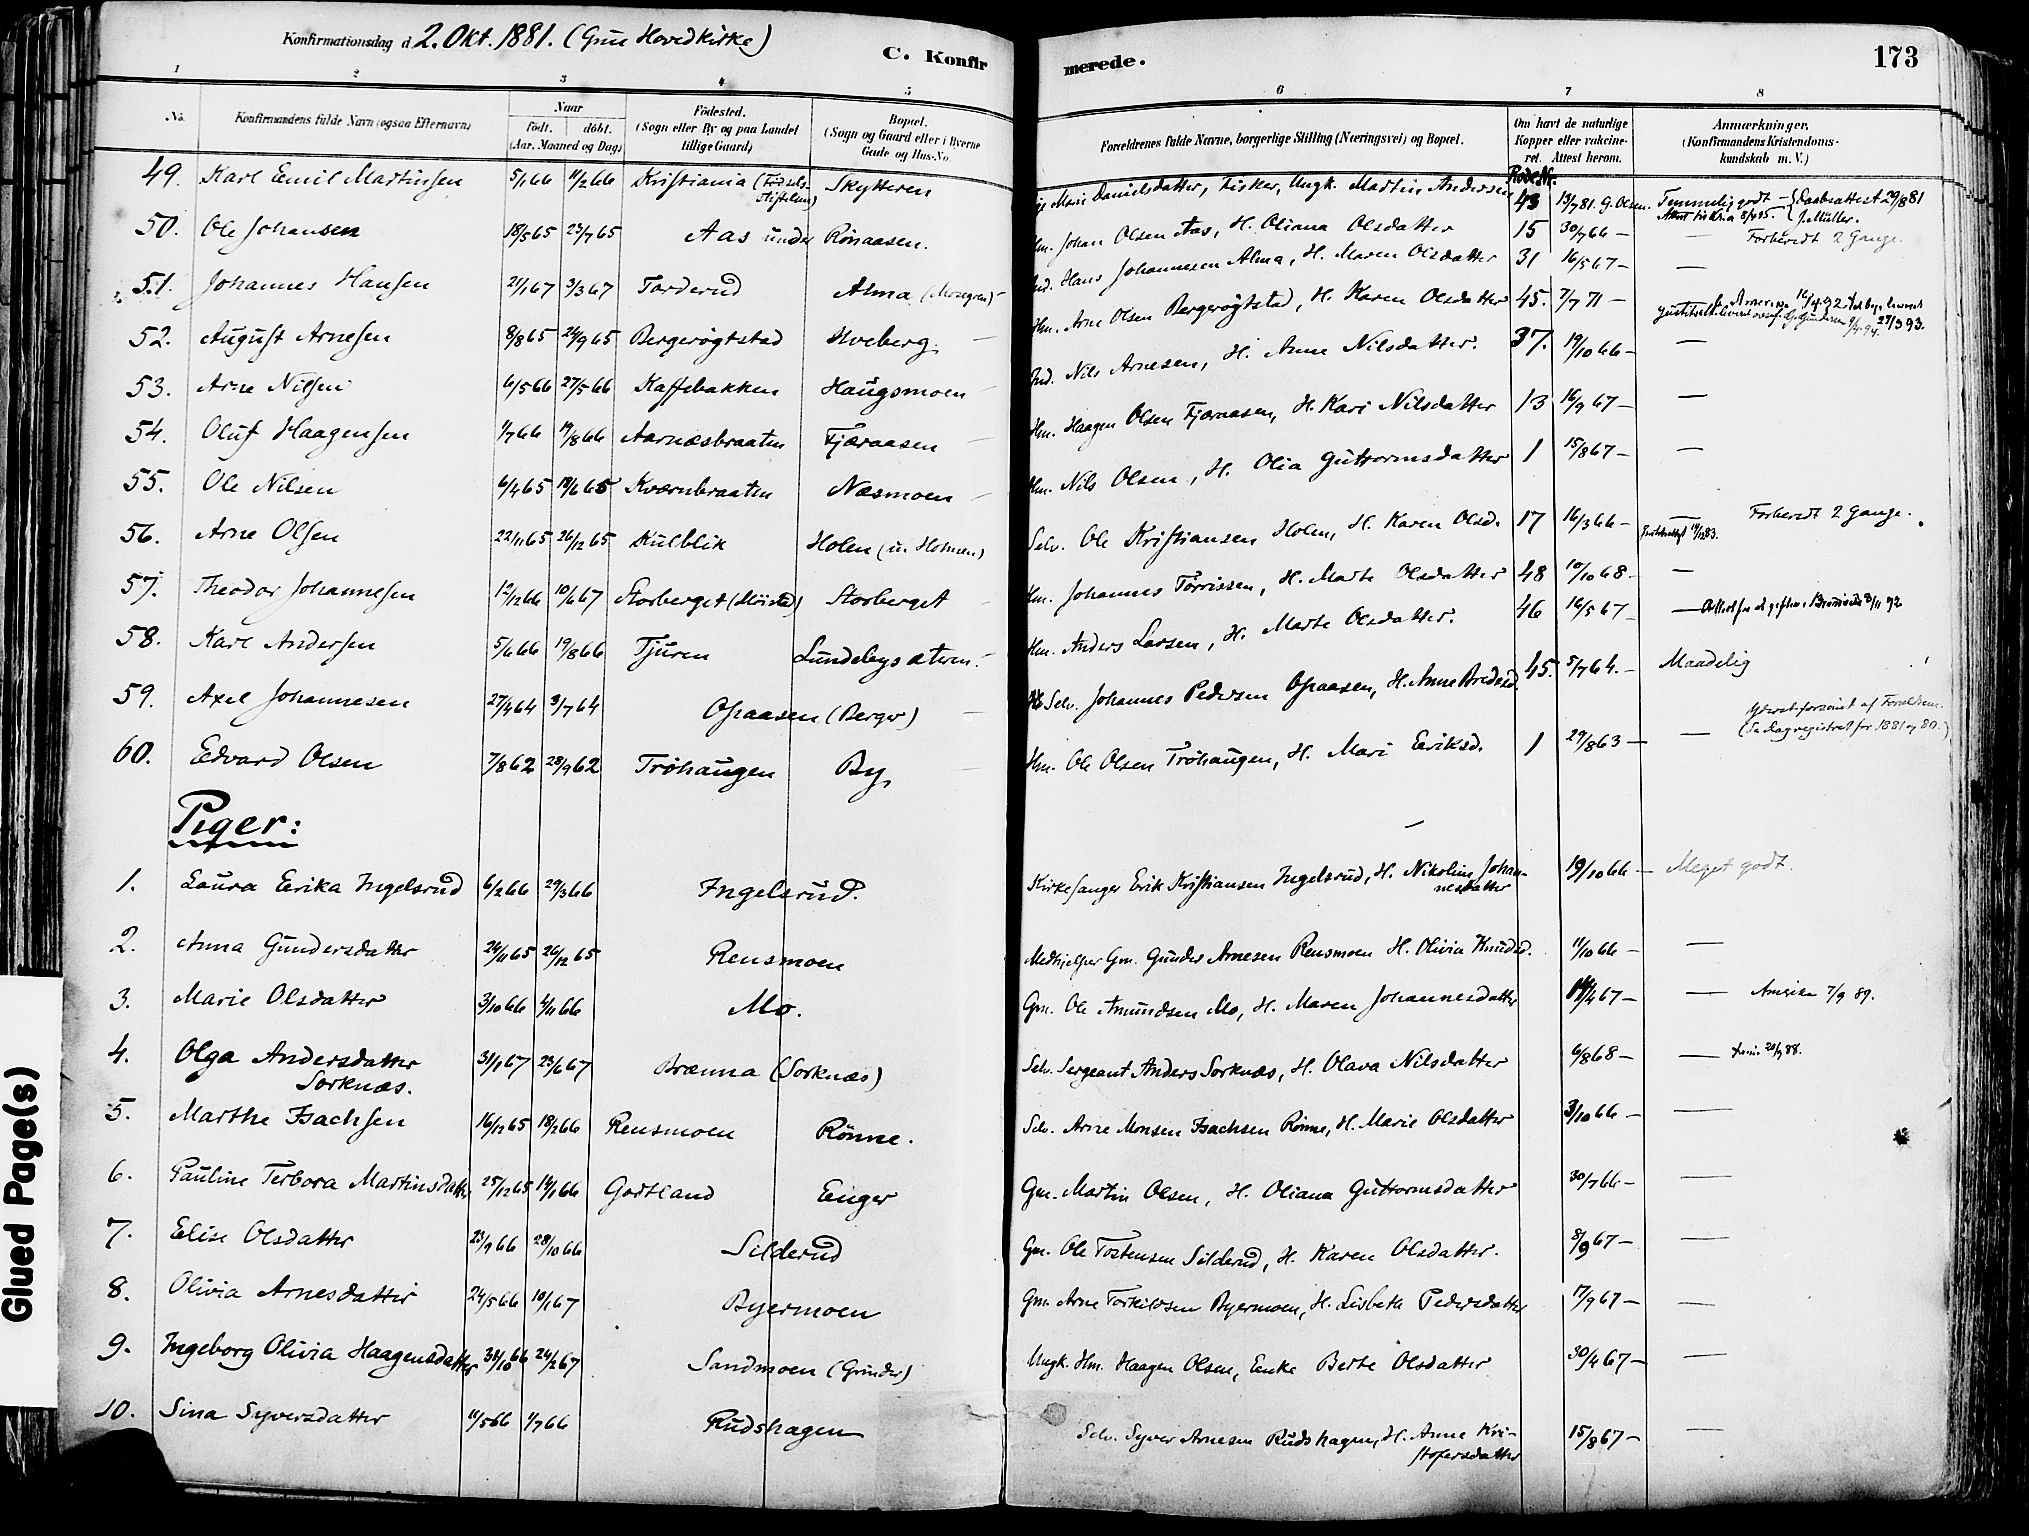 Konfirmationsdag d 2. Okt. 1881. (Grue Hovedkirke)
C. Konfirmerede.
173
1 2 3 4 5 6 7 8
No. Konfirmandens fulde Navn (ogsaa Efternavn) Naar født. døbt. (Aar, Maaned og Dag) Fødested. (Sogn eller By og paa Landet tillige Gaard) Bopæl. (Sogn og Gaard eller i Byerne Gade og Hus-No. Forældrenes fulde Navne, borgerlige Stilling (Næringsvei) og Bopæl. Om havt de naturlige Kopper eller vakcineret. Attest herom. Anmærkninger. (Konfirmandens Kristendomskundskab m. V.)
Rode Nr.
49. Karl Emil Martinsen 5/1 66 11/2 66 Kristiania (Fødselsstiftelsen) Skytteren Marie Danielsdatter, Fisker, Ungk. Martin Andersen 43 13/7 81. G. Olsen. Temmelig godt - Daabsattest 29/8 81 J. Müller.
50. Ole Johansen 18/5 65 23/7 65 Aas under Rönaasen. Hm. Johan Olsen Aas, H. Oliana Olsdatter 15 30/7 66 — — Forberedt 2 Gange.
51. Johannes Hansen 21/1 67 3/3 67 Torderud Alma (Mosegren) Ind. Hans Johannesen Alma, H. Maren Olsdatter 31 16/5 67 — —
52. August Arnesen 8/8 65 24/9 65 Bergerøgtstad Hveberg. Hm. Arne Olsen Bergerøgtstad, H. Karen Olsdatter 45. 7/7 71 — 27/3 93.
53. Arne Nilsen 6/5 66 27/5 66 Kaffebakken Haugsmoen Ind. Nils Arnesen, H. Anne Nilsdatter. 37. 19/10 66 — —
54. Oluf Haagensen 1/7 66 19/8 66 Aarnæsbraaten Fjæraasen Hm. Haagen Olsen Fjæraasen, H. Kari Nilsdatter 13 16/9 67 — —
55. Ole Nilsen 6/4 65 18/6 65 Kværnbraaten Næsmoen Hm. Nils Olsen, H. Olia Guttormsdatter 1 15/8 67 — —
56. Arne Olsen 22/11 65 26/12 65 Kulblik Holen (u. Holmen) Selv. Ole Kristiansen Holen, H. Karen Olsd. 17 16/3 66 — — Forberedt 2 Gange.
57. Theodor Johannesen 12/12 66 10/6 67 Storberget (Möistad) Storberget Hm. Johannes Tørrissen, H. Marte Olsdatter 48 10/10 68 — —
58. Karl Andersen 5/6 66 19/8 66 Tjuren Lundebysæteren. Hm. Anders Larsen, H. Marte Olsdatter. 46 16/5 67 — —
59. Axel Johannesen 27/4 64 3/7 64 Opaasen (Berger) Selv. Johannes Pedersen Opaasen, H. Anne Bredesd. 45. 5/7 64. — Maadelig
60. Edvard Olsen 7/8 62 28/9 62 Tröhaugen By Hm. Ole Olsen Tröhaugen, H. Mari Eriksd. 1 29/8 63 — — Yderst forsømt af Forældrene. (Se Dagregistret for 1881 og 80.)
Piger:
1. Laura Erika Ingelsrud 6/2 66 29/3 66 Ingelsrud. Kirkesanger Erik Kristiansen Ingelsrud, H. Nikoline Johannesdatter 19/10 66 — Meget godt.
2. Anna Gundersdatter 24/11 65 26/12 65 Rensmoen Medhjelper Gm. Gunder Arnesen Rensmoen H. Olivia Knudsd. 11/10 66 — —
3. Marie Olsdatter 3/10 66 4/11 66 Mo. Gm. Ole Amundsen Mo, H. Maren Johannesdatter 14/4 67 — — Amerika 7/9 89.
4. Olga Andersdatter Sorknæs. 31/1 67 23/6 67 Brænna (Sorknæs) Selv. Sergeant Anders Sorknæs, H. Olava Nilsdatter 6/8 68 — —
5. Marthe Isachsen 16/12 65 18/2 66 Rensmoen Rönne. Selv. Arne Monsen Isachsen Rönne, H. Marie Olsdatter 3/10 66 — —
6. Pauline Terbora Martinsdatter 25/12 65 14/1 66 Godtland Enger Gm. Martin Olsen, H. Oliana Guttormsdatter 30/7 66 — —
7. Elise Olsdatter 23/9 66 28/10 66 Silderud Gm. Ole Tostensen Silderud, H. Karen Olsdatter. 8/9 67 — —
8. Olivia Arnesdatter 24/5 66 10/1 67 Byermoen Gm. Arne Torkildsen Byermoen, H. Lisbeth Pedersdatter 17/9 67 — —
9. Ingeborg Olivia Haagensdatter 31/10 66 24/2 67 Sandmoen (Grinder) Ungk. Hm. Haagen Olsen, Enke Berte Olsdatter 30/4 67 — —
10. Sina Syversdatter 11/5 66 1/7 66 Rudshagen Selv. Syver Arnesen Rudshagen, H. Anne Kristofersdatter 15/8 67 — —
Glued Page(s)